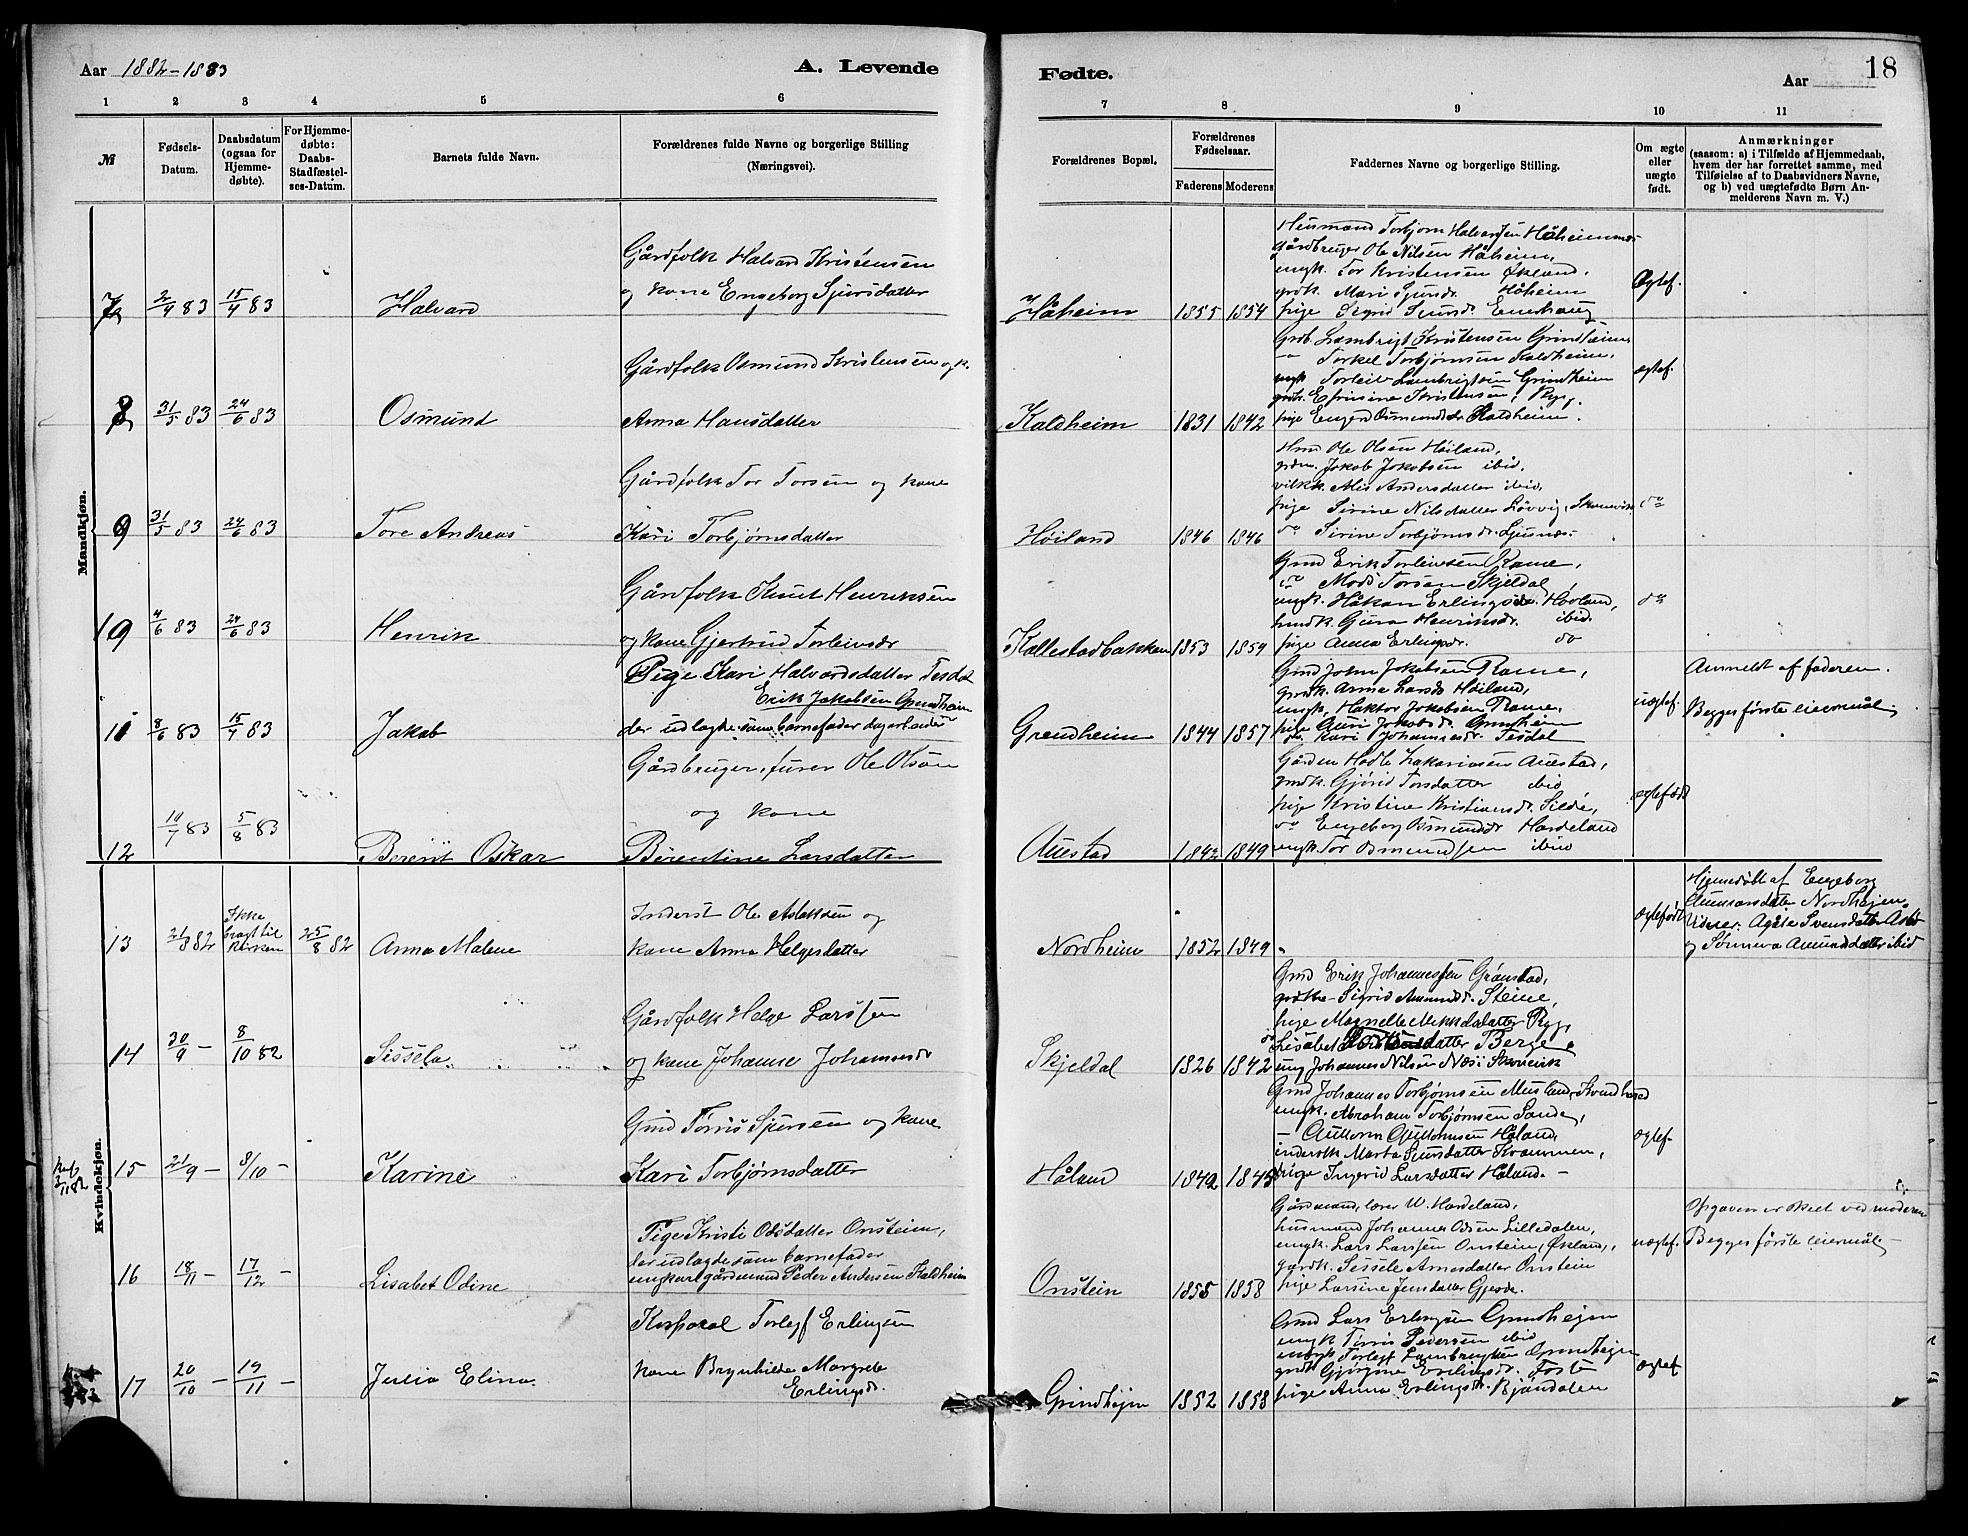 Aar 1882-1883
A. Levende
Fødte.
Aar
18
1 2 3 4 5 6 7 8 9 10 11
№
Fødsels-
Datum.
Daabsdatum
(ogsaa for
Hjemme-
døbte).
For Hjemme-
døbte:
Daabs-
Stadfæstel-
ses-Datum.
Barnets fulde Navn.
Forældrenes fulde Navne og borgerlige Stilling
(Næringsvei).
Forældrenes Bopæl.
Forældrenes
Fødselsaar.
Faderens Moderens
Faddernes Navne og borgerlige Stilling.
Om ægte
eller
uægte
født.
Anmærkninger
(saasom: a) i Tilfælde af Hjemmedaab,
hvem der har forrettet samme, med
Tilføielse af to Daabsvidners Navne,
og b) ved uægtefødte Børn An-
melderens Navn m. V.)
Mandkjøn.
7 2/4 83 15/4 83 Halvard
Gårdfolk Halvard Kristensen
og kone Engeborg Sjursdatter
Håheim 1855 1854
Husmand Torbjørn Halvorsen Håheimnæs
gårdbruger Ole Nilsen Håheim,
ungk. Tor Kristensen Økland,
grdk. Mari Sjursdr. Håheim
pige Sigrid
Ægtef.
8 31/5 83 24/6 83 Osmund
Gårdfolk Osmund Kristensen og k.
Anna Hansdatter
Kaldheim 1831 1842
Grdb. Lambrigt Kristensen Grindheim
" Torkel Torbjørnsen Kaldheim,
ungk Torleiv Lambrigtsen Grindheim
pige Osmundsdr Kaldheim.
ægtef.
9 31/5 83 24/6 83 Tore Andreas
Gårdfolk Tor Torsen og kone
Kari Torbjørnsdatter
Høiland 1846 1846
Ole Olsen Høiland,
Jakob Jakobsen ibid,
Andersdatter ibid,
pige Sirine Nilsdatter Løvvig, Skonevik
do Sirine Torbjørnsdr.
do
10 4/6 83 24/6 83 Henrik
Gårdfolk Knut Henriksen
og kone Gjertrud Torleivsdr
Kallestadbakken 1853 1859
Grmd Erik Torleivsen Rame,
do Mods Torsen Skjeldal
ungk. Håkan Erlingsdr. Høvland,
husk. Guro Henriksdr. ibid.
pige Anna Erlingsdr. do
do
11 8/6 83 15/7 83 Jakob
Pige Kari Halvardsdatter Tesdal
Erik Jakobsen Grindheim
der udlagde som barnefader dagarbeider
Grendheim 1844 1857
Grmd John Jakobsen Rame,
grdk. Anna Larsdr Høiland,
ungk. Haktor Jakobsen Rame,
pige Jakobsdr. Grindheim
do Kari Johannesdr. Tesdal
uægtef.
Anmeldt af faderen.
Begges første leiermål.
12 10/7 83 5/8 83 Berent Oskar
Gårdbruger, furer Ole Olsøn
og kone
Berentine Larsdatter
Auestad 1842 1849
Zakariasen Auestad,
grdk. Gjørid Torsdatter ibid
pige Kristine Kristiansdr. Silde,
do Engeborg Osmundsdr Hardeland
ungk. Tor Osmundsen ibid
ægtefødt
Kvindekjøn.
13 21/8 82 Ikke
bragt til
Kirken 25/8 82 Anna Malene
Inderst Ole Aslaksen og
kone Anna Helgesdatter
Nordheim 1852 1849
ægtefødt
Hjemmedøbt af Engeborg
Nordhejm
Vidner: Agåte Svensdatter
og Sønneva Amundsdatter ibid
14 30/9 - 8/10 82 Sissela
Gårdfolk Helge Larssen
og kone Johanne Johannesdr
Skjeldal 1826 1842
Grmd Erik Johannessen Grønstad,
grdk. Sigrid Amundsdr. Steine,
pige Magnelle Mikkelsdatter Ryg,
do Lisabet datter Berge.
ung Johannes Nilsen Næs i Skonevik
15 21/9 - 8/10 - Karine
Grmd Tørris Sjursen og kone
Kari Torbjørnsdatter
Håland 1842 1845
Grmd Johannes Torbjørnsen Musland, Kvindhered
ungk. Abraham Torbjørnsen Sande,
- Guttorm Guttormsen Håland,
inderstk Marta Sjursdatter Krammen,
pige Ingrid Larsdatter Håland. -
ægtef.
16 18/11 - 17/12 - Lisabet Odine
Pige Kristi Odsdatter Onsteim,
der udlagde som barnefader
ungkarl gårdmand Peder Andersen Kaldheim
Onstein 1855 1858
Gårdmand, lærer W. Hardeland,
husmand Johannes Odsen Lilledalen,
ungk. Lars Larssen Onstein, (Økland),
gardk. Sessele Arnesdatter Onstein
pige Larsine Jensdatter Gjerde.
uægtef.
Opgaven er skeet ved moderen
Begges første leiermål
17 20/10 - 19/11 - Julia Elina
Korporal Torleif Erlingsen
kone Brynhilde Margrete
Erlingsdr.
Grindhejm 1852 1858
Grmd Lars Erlingsen Grindhejm
ungk Tørris Pedersen ibid
ungk Torleif Lambrigtsen Grindhejm
grdk Gjørine Erlingsdr. Foste
pige Anna Erlingsdr. Bjåndalen
ægtef